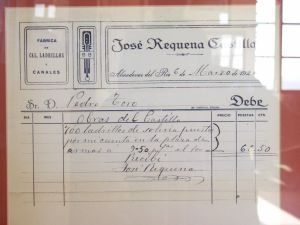 FABRICA
DE
CAL, LADRILLOS
Y
CANALES
José Requena Castilla
Almodovar del Rio 6 de Marzo de 192
Sr. D. Pedro Toro Debe
DIA MES PRECIO PESETAS CTS.
Obras del Castillo
700 ladrillos de soleria puesto
por mi cuenta en la plaza de
armas a 9'50 pts el 60 50
Recibi
José Requena